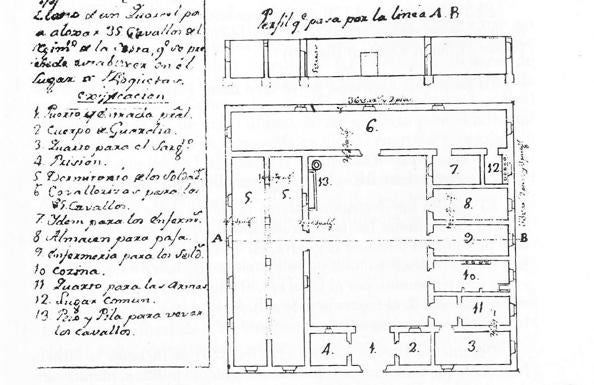 Llano de un Quartel pa
a aloxar 35 Cavallos del
Regimto. de la Costa, qe. se pre
en el
Lugar de Roquetas.
Explicacion
1 Puerta y Entrada prãl.
2 Cuerpo de Guardia.
3 Quarto para el Sargto.
4 Prision.
5 Dormitorio de los Soldad.
6 Cavallerizas para los
35 Cavallos.
7 Ydem para los Enferm.
8 Almacen para paja.
9 Enfermeria para los Sold.
10 Cozina.
11 Quarto para las Armas
12 Lugar Comun.
13 Pozo y Pila para vever
los Cavallos.
Perfil qe. pasa por la linea A. B
6.
5.
5.
13.
7.
12.
8.
9.
10.
11.
A
B
4.
1.
2.
3.